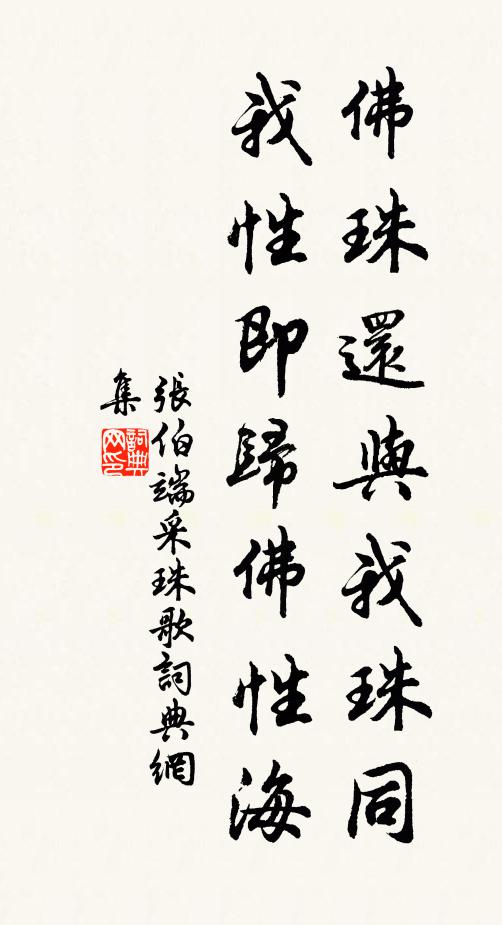 佛珠還與我珠同
我性即歸佛性海
張伯端采珠歌詞典網
集
詞典
网印